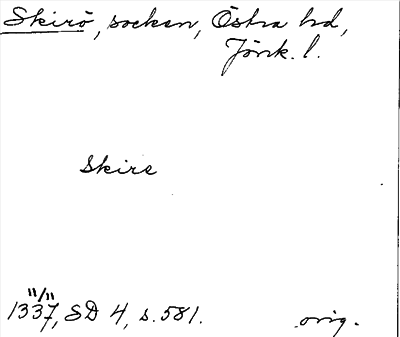 Skirö, socken, Östra hd,
Jönk. l.
Skire
11/11
1337, SD 4, s. 581.
orig.